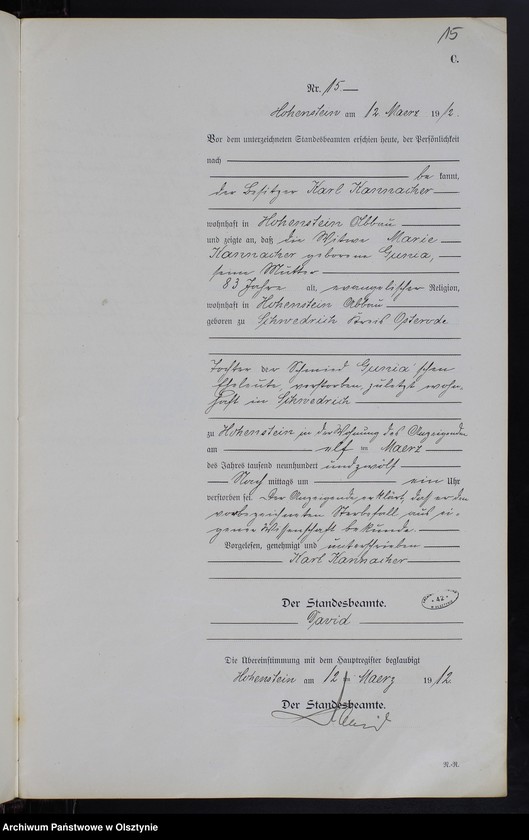 15
C.
Nr. 15.
Hohenstein am 12 Maerz 1912.
Vor dem unterzeichneten Standesbeamten erschien heute, der Persönlichkeit
nach
be kannt,
der Besitzer Karl Kannacher
wohnhaft in Hohenstein Abbau
und zeigte an, daß die Witwe Marie
Kannacher geborene Gunia,
seine Mutter
83 Jahre alt, evangelischer Religion,
wohnhaft in Hohenstein Abbau
geboren zu Schwedrich Kreis Osterode
Tochter der Schmied Gunia'schen
Eheleute, verstorben, zuletzt wohn-
haft in Schwedrich
zu Hohenstein in der Wohnung des Anzeigenden
am elf ten Maerz
des Jahres tausend neunhundert undzwölf
Nach mittags um ein Uhr
verstorben sei. Der Anzeigende erklärt, daß er den
vorbezeichneten Sterbefall aus ei-
gener Wissenschaft bekunde.
Vorgelesen, genehmigt und unterschrieben
Karl Kannacher
Der Standesbeamte.
David
Die Übereinstimmung mit dem Hauptregister beglaubigt
Hohenstein am 12 ten Maerz 1912.
Der Standesbeamte.
David
N.-R.
Archiwum Państwowe w Olsztynie